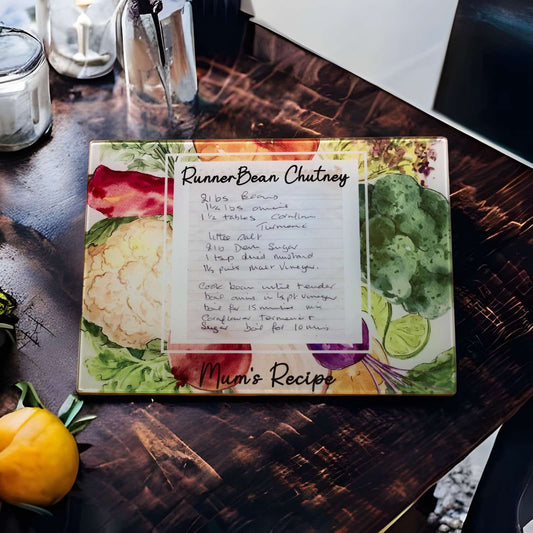 Runner Bean Chutney
2lbs Beans
1½ lbs onions
1½ tables Cornflour
Turmeric
Little salt
2lb Dem Sugar
1 tsp dried mustard
1½ pints malt vinegar.
Cook bean until tender
boil onions in ½ pt vinegar
boil for 15 minutes mix
Cornflour Turmeric &
Sugar boil for 10 mins
Mum's Recipe